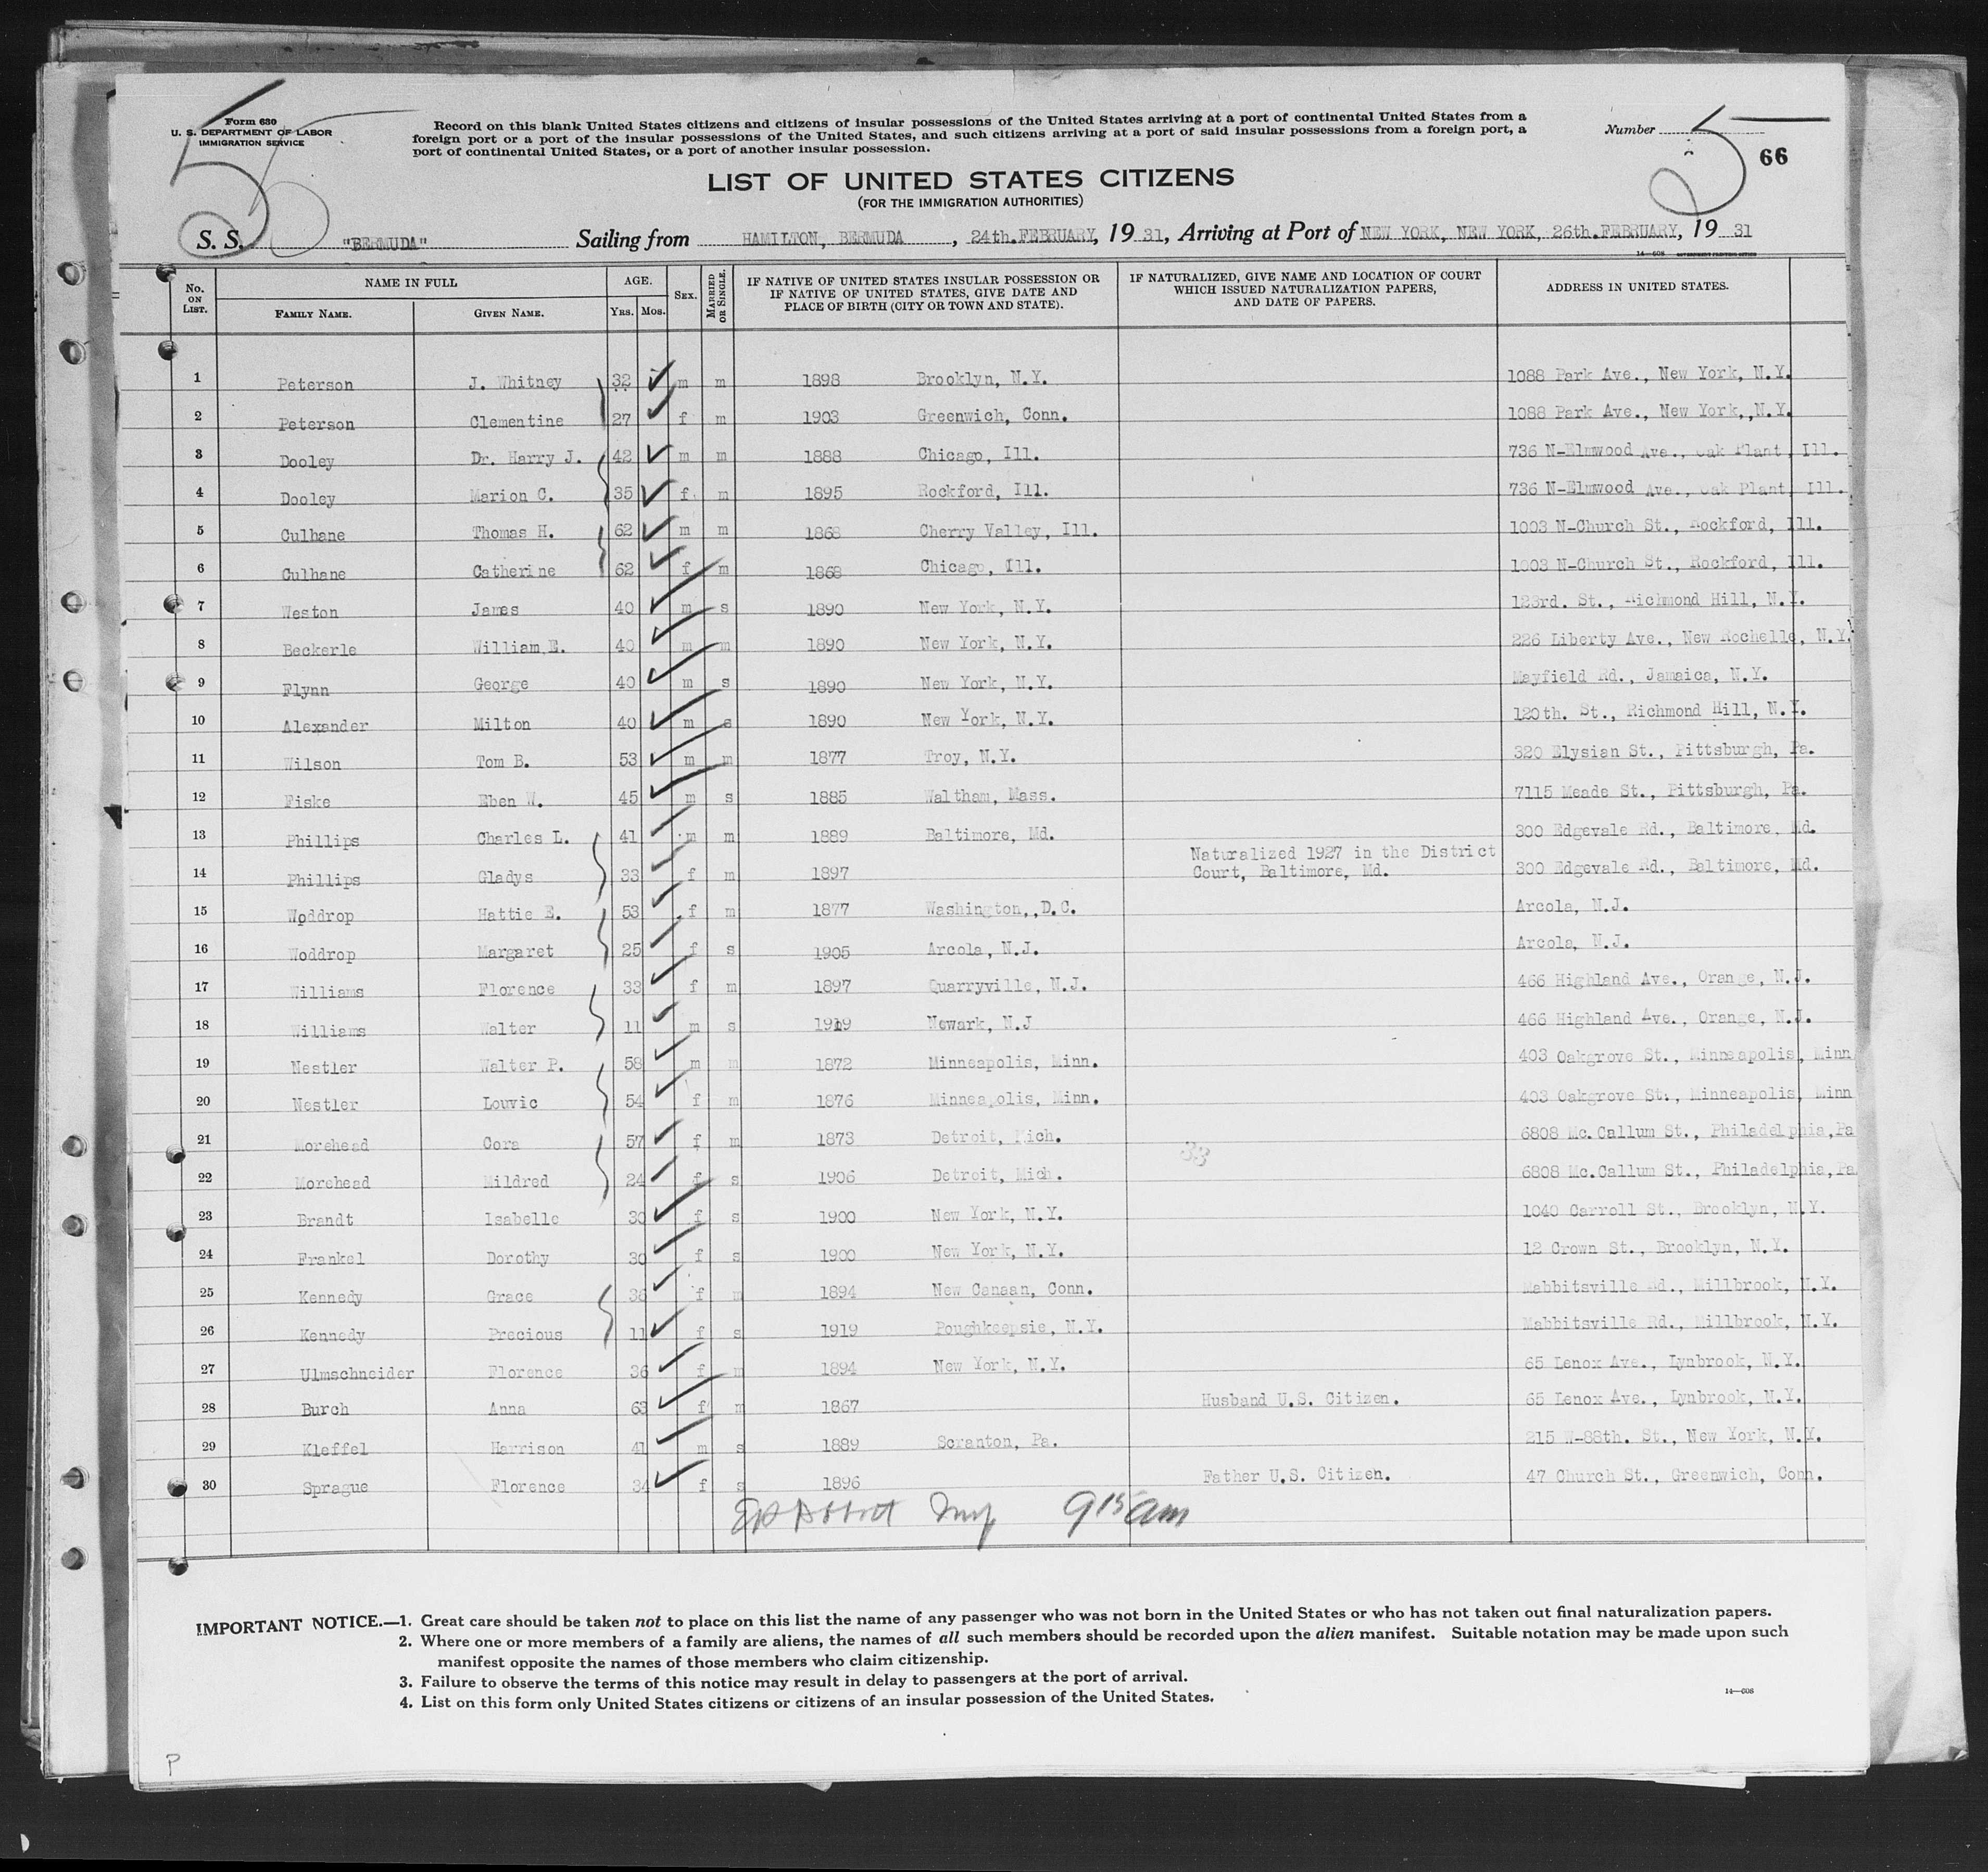 Form 630
U. S. DEPARTMENT OF LABOR
IMMIGRATION SERVICE
Record on this blank United States citizens and citizens of insular possessions of the United States arriving at a port of continental United States from a
foreign port or a part of the insular possessions of the United States, and such citizens arriving at a port of said insular possessions from a foreign port, a
port of continental United States, or a port of another insular possession.
Number 5
66
5
LIST OF UNITED STATES CITIZENS
(FOR THE IMMIGRATION AUTHORITIES)
S. S. "BERMUDA" Sailing from HAMILTON, BERMUDA, 24th.FEBRUARY, 19 31, Arriving at Port of NEW YORK, NEW YORK, 26th.FEBRUARY, 19 31
14—608 GOVERNMENT PRINTING OFFICE
No. ON LIST. NAME IN FULL FAMILY NAME. GIVEN NAME. AGE. YRS. MOS. SEX. MARRIED OR SINGLE. IF NATIVE OF UNITED STATES INSULAR POSSESSION OR IF NATIVE OF UNITED STATES, GIVE DATE AND PLACE OF BIRTH (CITY OR TOWN AND STATE). IF NATURALIZED, GIVE NAME AND LOCATION OF COURT WHICH ISSUED NATURALIZATION PAPERS, AND DATE OF PAPERS. ADDRESS IN UNITED STATES.
1 Peterson J. Whitney 32 m m 1898 Brooklyn, N.Y. 1088 Park Ave., New York, N.Y.
2 Peterson Clementine 27 f m 1903 Greenwich, Conn. 1088 Park Ave., New York,,N.Y.
3 Dooley Dr. Harry J. 42 m m 1888 Chicago, Ill. 736 N-Elmwood Ave., Oak Plant, Ill.
4 Dooley Marion C. 35 f m 1895 Rockford, Ill. 736 N-Elmwood Ave., Oak Plant, Ill.
5 Culhane Thomas H. 62 m m 1868 Cherry Valley, Ill. 1003 N-Church St., Rockford, Ill.
6 Culhane Catherine 62 f m 1868 Chicago, Ill. 1003 N-Church St., Rockford, Ill.
7 Weston James 40 m s 1890 New York, N.Y. 123rd. St., Richmond Hill, N.Y.
8 Beckerle William E. 40 m m 1890 New York, N.Y. 226 Liberty Ave., New Rochelle, N.Y.
9 Flynn George 40 m s 1890 New York, N.Y. Mayfield Rd., Jamaica, N.Y.
10 Alexander Milton 40 m s 1890 New York, N.Y. 120th. St., Richmond Hill, N.Y.
11 Wilson Tom B. 53 m m 1877 Troy, N.Y. 320 Elysian St., Pittsburgh, Pa.
12 Fiske Eben W. 45 m s 1885 Waltham, Mass. 7115 Meade St., Pittsburgh, Pa.
13 Phillips Charles L. 41 m m 1889 Baltimore, Md. 300 Edgevale Rd., Baltimore, Md.
14 Phillips Gladys 33 f m 1897 Naturalized 1927 in the District Court, Baltimore, Md. 300 Edgevale Rd., Baltimore, Md.
15 Woddrop Hattie E. 53 f m 1877 Washington,,D.C. Arcola, N.J.
16 Woddrop Margaret 25 f s 1905 Arcola, N.J. Arcola, N.J.
17 Williams Florence 33 f m 1897 Quarryville, N.J. 466 Highland Ave., Orange, N.J.
18 Williams Walter 11 m s 1919 Newark, N.J 466 Highland Ave., Orange, N.J.
19 Nestler Walter P. 58 m m 1872 Minneapolis, Minn. 403 Oakgrove St., Minneapolis, Minn
20 Nestler Louvic 54 f m 1876 Minneapolis, Minn. 403 Oakgrove St., Minneapolis, Minn
21 Morehead Cora 57 f m 1873 Detroit, Mich. 6808 Mc.Callum St., Philadelphia,Pa
22 Morehead Mildred 24 f s 1906 Detroit, Mich. 6808 Mc.Callum St., Philadelphia,Pa
23 Brandt Isabelle 30 f s 1900 New York, N.Y. 1040 Carroll St., Brooklyn, N.Y.
24 Frankel Dorothy 30 f s 1900 New York, N.Y. 12 Crown St., Brooklyn, N.Y.
25 Kennedy Grace 36 f m 1894 New Canaan, Conn. Mabbitsville Rd., Millbrook, N.Y.
26 Kennedy Precious 11 f s 1919 Poughkeepsie, N.Y. Mabbitsville Rd., Millbrook, N.Y.
27 Ulmschneider Florence 36 f m 1894 New York, N.Y. 65 Lenox Ave., Lynbrook, N.Y.
28 Burch Anna 63 f m 1867 Husband U.S. Citizen. 65 Lenox Ave., Lynbrook, N.Y.
29 Kleffel Harrison 41 m s 1889 Scranton, Pa. 215 W-88th. St., New York, N.Y.
30 Sprague Florence 34 f s 1896 Father U.S. Citizen. 47 Church St., Greenwich, Conn.
9 15 am
IMPORTANT NOTICE.—1. Great care should be taken not to place on this list the name of any passenger who was not born in the United States or who has not taken out final naturalization papers.
2. Where one or more members of a family are aliens, the names of all such members should be recorded upon the alien manifest. Suitable notation may be made upon such
manifest opposite the names of those members who claim citizenship.
3. Failure to observe the terms of this notice may result in delay to passengers at the port of arrival.
4. List on this form only United States citizens or citizens of an insular possession of the United States.
14—608
P